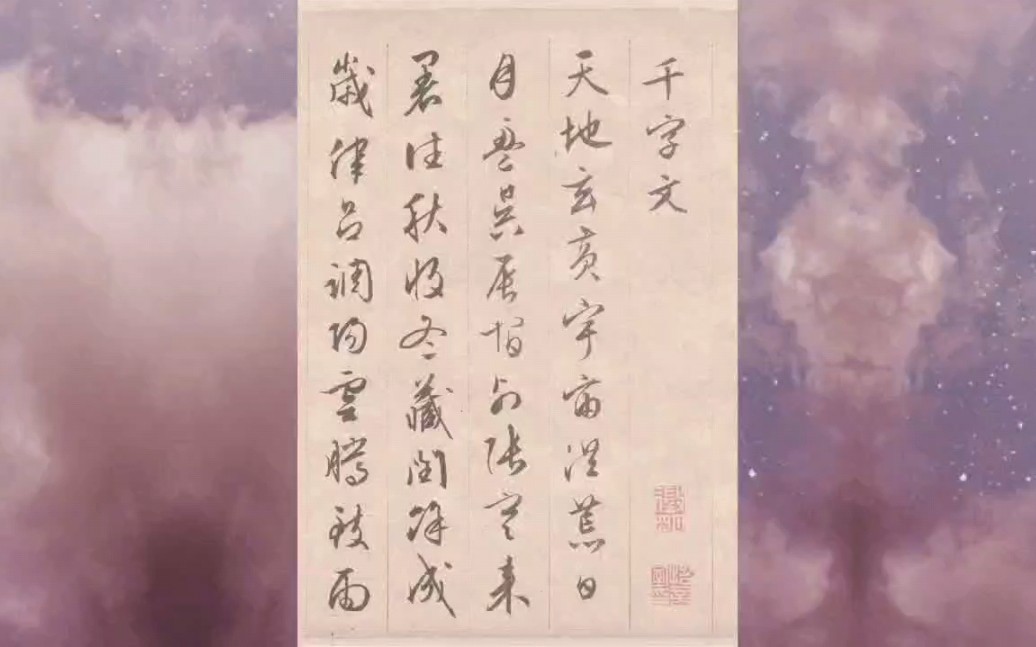 千字文
天地玄黃宇宙洪荒日
月盈昃辰宿列張寒來
暑往秋收冬藏閏餘成
歲律呂調陽雲騰致雨